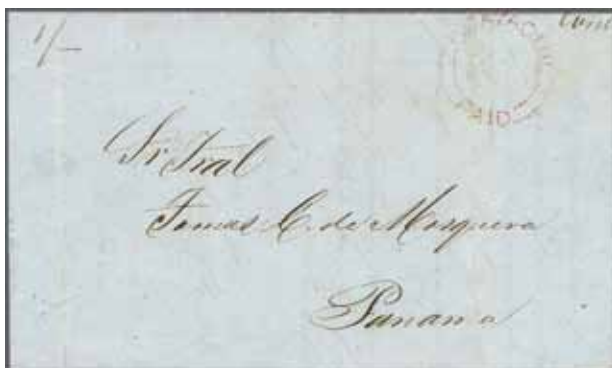 1/-
PAID
Sr. Gral
Tomas C. de Mosquera
Panama